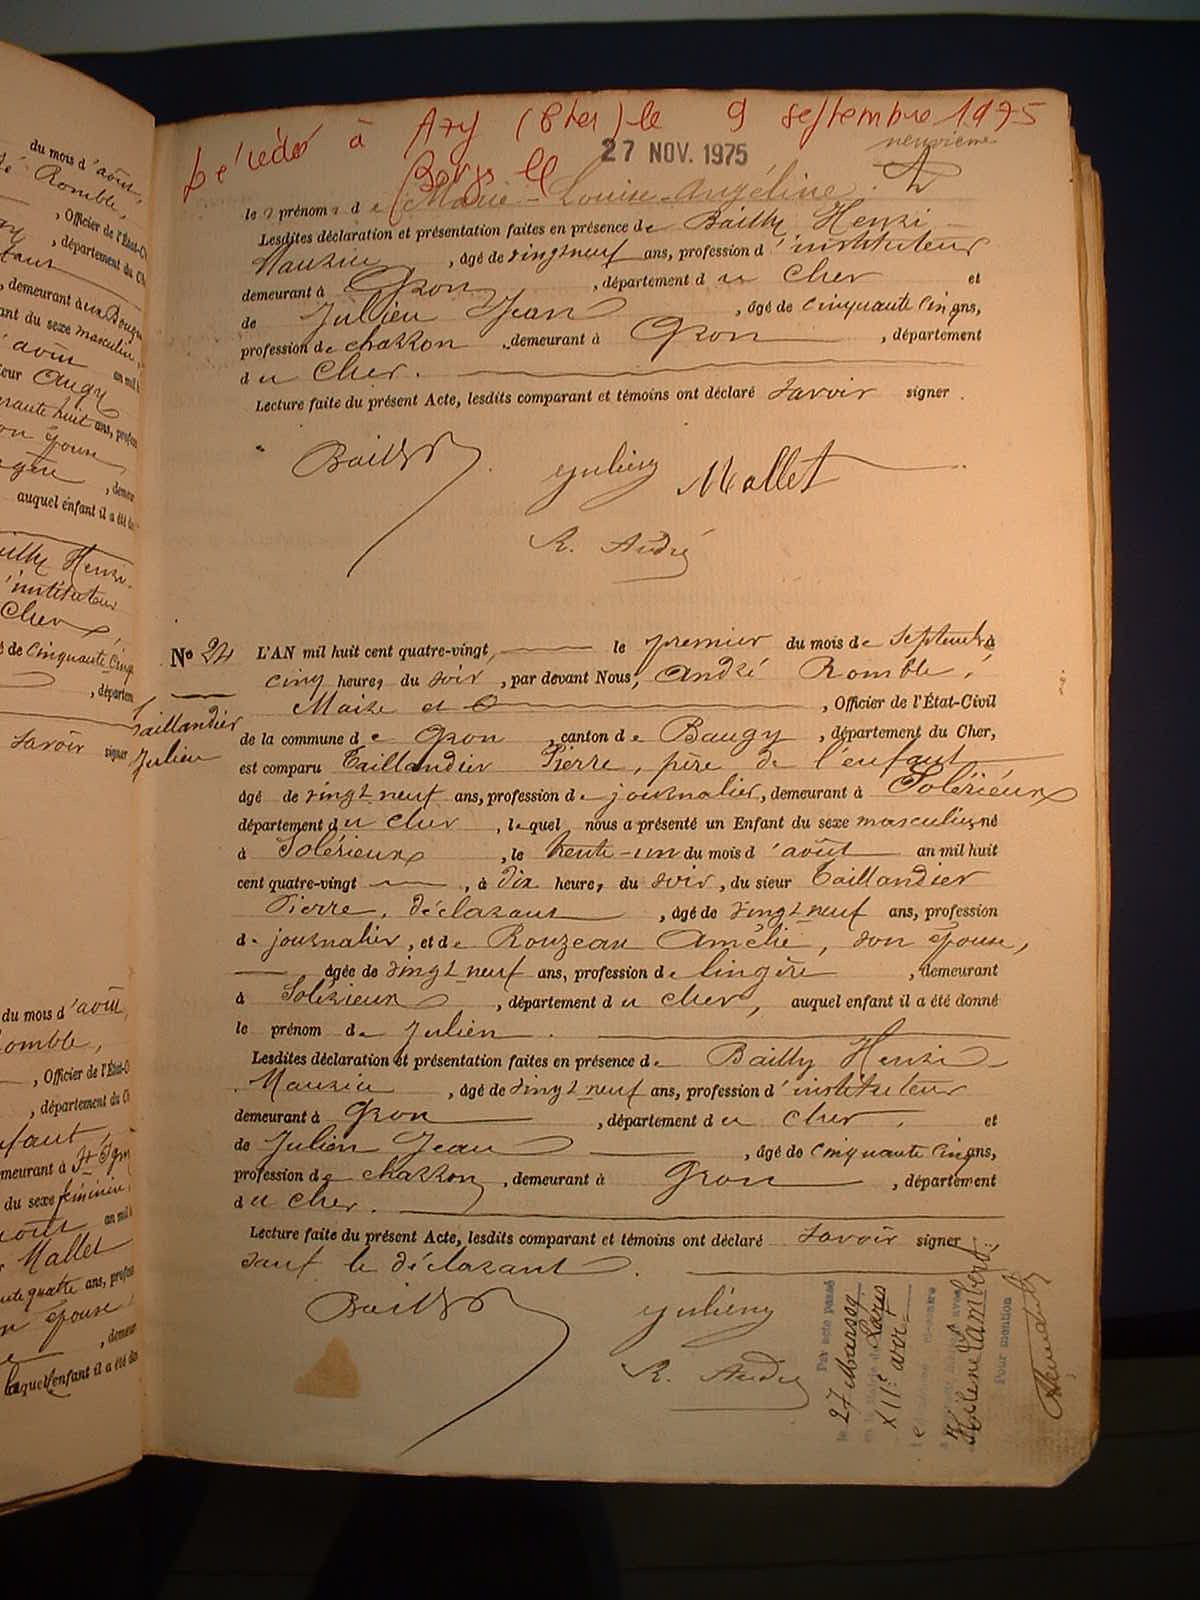 du mois d'août,
Romble,
, Officier de l'État-C
, département du C
, demeurant à
ant du sexe masculin,
août an mil h
ieur Augy
ans, profes
, demeur
auquel enfant il a été do
Bailly Henri
d'instituteur
Cher
de cinquante cinq
, départem
savoir signer
du mois d'août,
Romble,
, Officier de l'État-C
, département du C
enfant
demeurant à St
du sexe féminin,
août an mil h
Mallet
quatre ans, profes
épouse
, demeur
auquel enfant il a été do
Décédée à Azy (Cher) le 9 septembre 1975
27 NOV. 1975
neuvième
le prénom de Marie-Louise Angéline.
Lesdites déclaration et présentation faites en présence de Bailly Henri
Maurice, âgé de vingt neuf ans, profession d'instituteur
demeurant à Gron, département du Cher et
de Jullien Jean, âgé de cinquante cinq ans,
profession de charron, demeurant à Gron, département
du Cher.
Lecture faite du présent Acte, lesdits comparant et témoins ont déclaré savoir signer.
Bailly
Julieny Mallet
R. André
N° 24 L'AN mil huit cent quatre-vingt, le premier du mois de septembre à
cinq heures du soir, par devant Nous, André Romble,
Maire et O, Officier de l'État-Civil
Taillandier
Julien
de la commune de Gron, canton de Baugy, département du Cher,
est comparu Taillandier Pierre, père de l'enfant
âgé de vingt neuf ans, profession de journalier, demeurant à Solérieux
département du Cher, lequel nous a présenté un Enfant du sexe masculin, né
à Solérieux, le trente-un du mois d'août an mil huit
cent quatre-vingt, à dix heures du soir, du sieur Taillandier
Pierre, déclarant, âgé de vingt neuf ans, profession
de journalier, et de Rouzeau Amélie, son épouse,
âgée de vingt neuf ans, profession de lingère, demeurant
à Solérieux, département du Cher, auquel enfant il a été donné
le prénom de Julien.
Lesdites déclaration et présentation faites en présence de Bailly Henri
Maurice, âgé de vingt neuf ans, profession d'instituteur
demeurant à Gron, département du Cher, et
de Jullien Jean, âgé de cinquante cinq ans,
profession de charron, demeurant à Gron, département
du Cher.
Lecture faite du présent Acte, lesdits comparant et témoins ont déclaré savoir signer,
sauf le déclarant.
Bailly
Julieny
R. André
Par acte passé
le 27 Mars
en Mairie de Paris
XIIe arr.
ci-contre
avec
Hélène Lambert
Pour mention